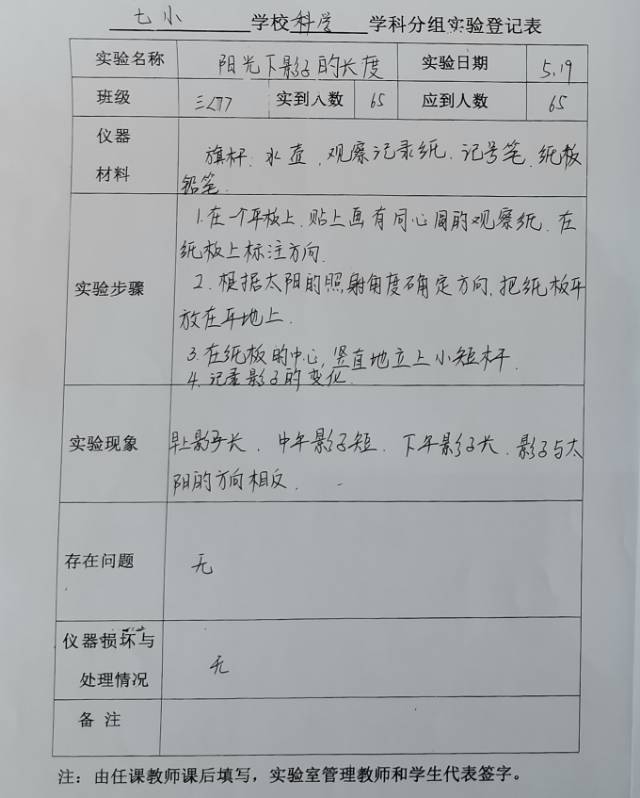 七小 学校 科学 学科分组实验登记表
实验名称 阳光下影子的长度 实验日期 5.19
班级 三<7> 实到人数 65 应到人数 65
仪器
材料
旗杆、水壶、观察记录纸、记号笔、纸板
铅笔.
实验步骤
1.在一个平板上.贴上画有同心圆的观察纸.在
纸板上标注方向.
2.根据太阳的照射角度确定方向.把纸板平
放在平地上.
3.在纸板的中心,竖直地立上小短杆.
4.记录影子的变化.
实验现象
早上影子长.中午影子短.下午影子长.影子与太
阳的方向相反.
存在问题 无
仪器损坏与
处理情况
无
备注
注：由任课教师课后填写，实验室管理教师和学生代表签字。